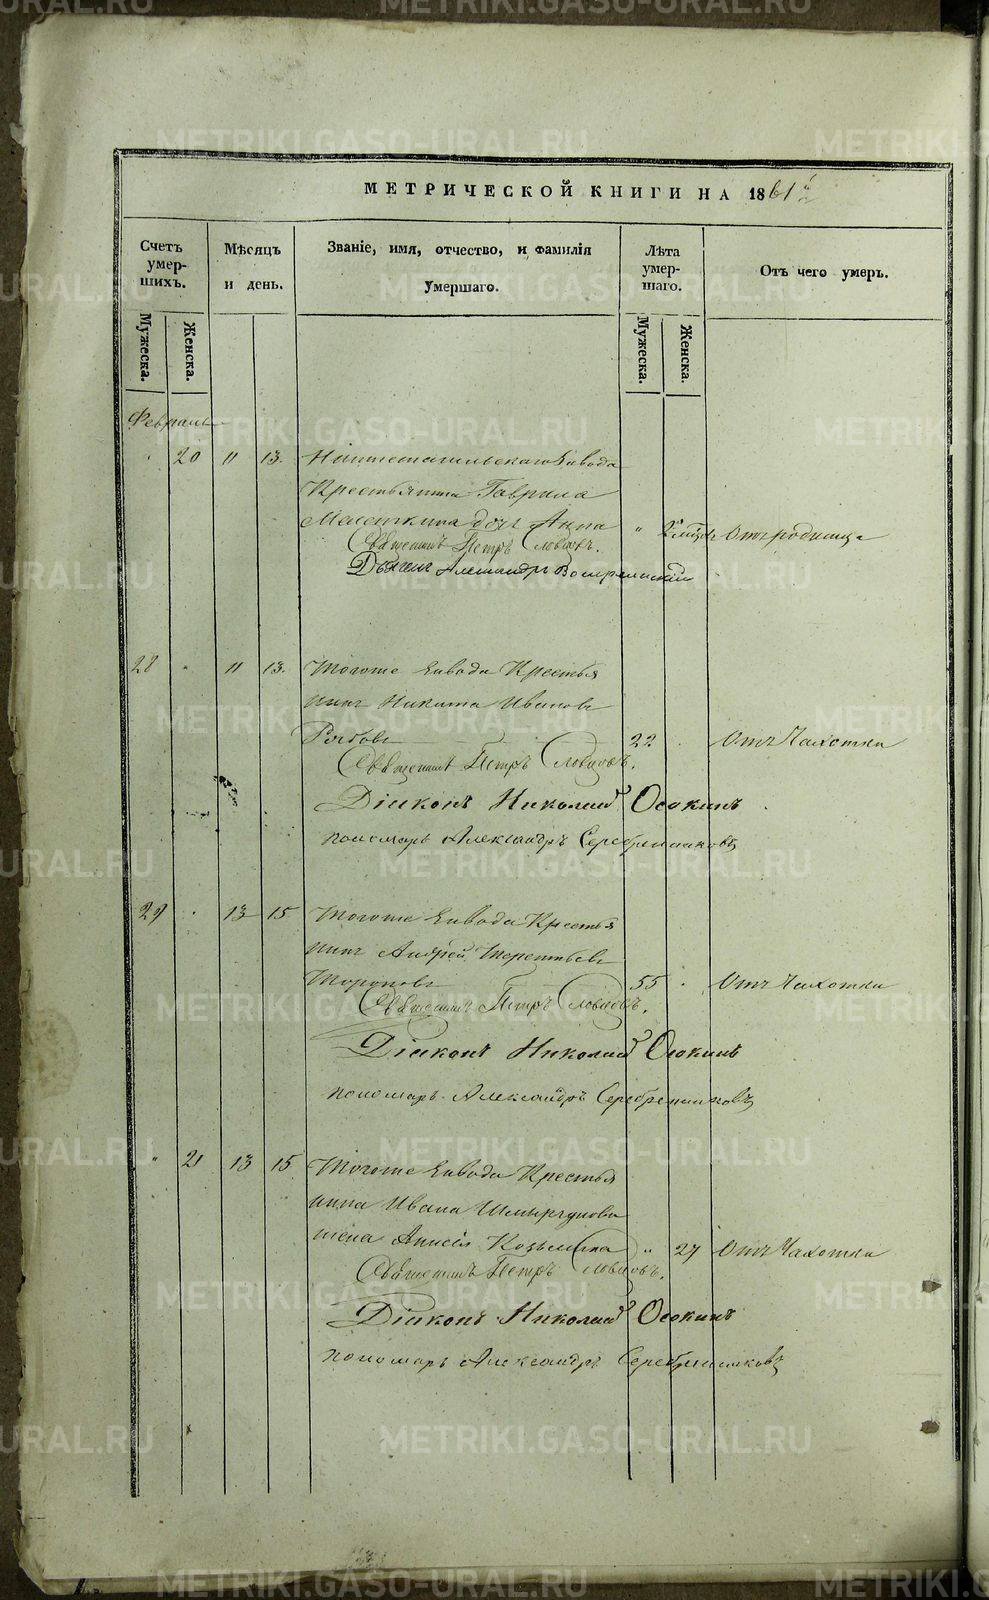 МЕТРИЧЕСКОЙ КНИГИ НА 1861 г
Счетъ умер- шихъ.
Мѣсяцъ и день.
Званіе, имя, отчество, и фамилія Умершаго.
Лѣта умер- шаго.
Отъ чего умеръ.
Мужеска. Женска. Мужеска. Женска.
Февраль
20 11 13. Нижнетагильскаго Завода
Крестьянина Гаврила
дочь Анна
" 2 Отъ родимца
Священникъ Петръ Словцовъ.
Дьяконъ Александръ
28 " 11 13. Тогоже Завода Крестья
нинъ Никита Ивановъ
22 " Отъ Чахотки
Священникъ Петръ Словцовъ.
Діаконъ Николай Осокинъ
пономарь Александръ Серебрениковъ
29 " 13 15 Тогоже Завода Крестья
нинъ Андрей Терентьевъ
Тороповъ 55 " Отъ Чахотки
Священникъ Петръ Словцовъ.
Діаконъ Николай Осокинъ
пономарь Александръ Серебренниковъ
" 21 13 15 Тогоже Завода Крестья
нина Ивана
жена Анисія Козьмина " 27 Отъ Чахотки
Священникъ Петръ Словцовъ.
Діаконъ Николай Осокинъ
пономарь Александръ Серебренниковъ
METRIKI.GASO-URAL.RU